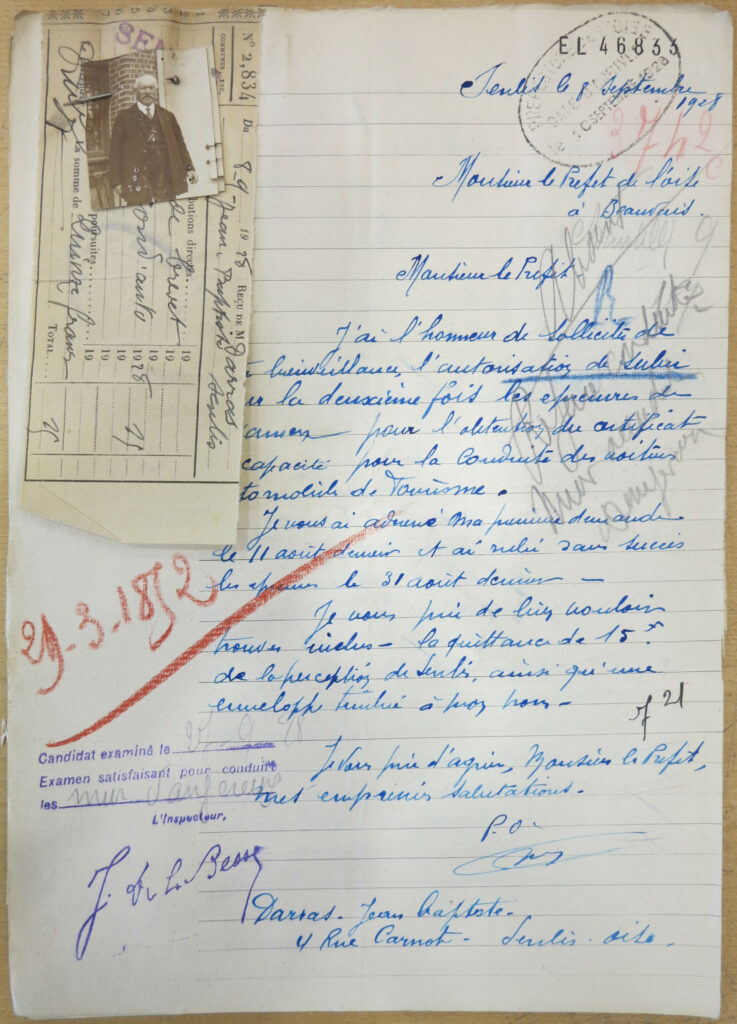 EL 46833
PREFECTURE DE L'OISE
DATE D'ARRIVÉE
10 SEPTEMBRE 1928
Senlis le 8 Septembre
1928
3742
Monsieur le Prefet de l'oise
à Beauvais.
Monsieur le Prefet
J'ai l'honneur de sollicité de
bienveillance, l'autorisation de subir
la deuxième fois les epreuves de
pour l'obtention du certificat
capacité pour la conduite des voitures
tomobile de Tourisme.
Je vous ai adressé ma première demande
le 11 août dernier et ai subi sans succès
les epreuves le 31 août dernier —
Je vous prie de bien vouloir
trouver inclus - la quittance de 15 f.
de la perception de Senlis, ainsi qu'une
enveloppe timbré à mon nom -
21
Je vous prie d'agréer, Monsieur le Prefet,
mes empressés salutations.
P.O.
Darras - Jean Baptiste -
4 Rue Carnot - Senlis - oise.
29-3-1852
Candidat examiné le
Examen satisfaisant pour conduire
les
L'Inspecteur,
SEN
N° 2,834 Du 8-9 1928
COMMUNES, ETC.
REÇU DE M Darras
Jean-Baptiste
Senlis
la somme de Quinze francs
butions directes
de brevet
d'auto
poursuites
19
19
19
1928 15
19
19
TOTAL 15